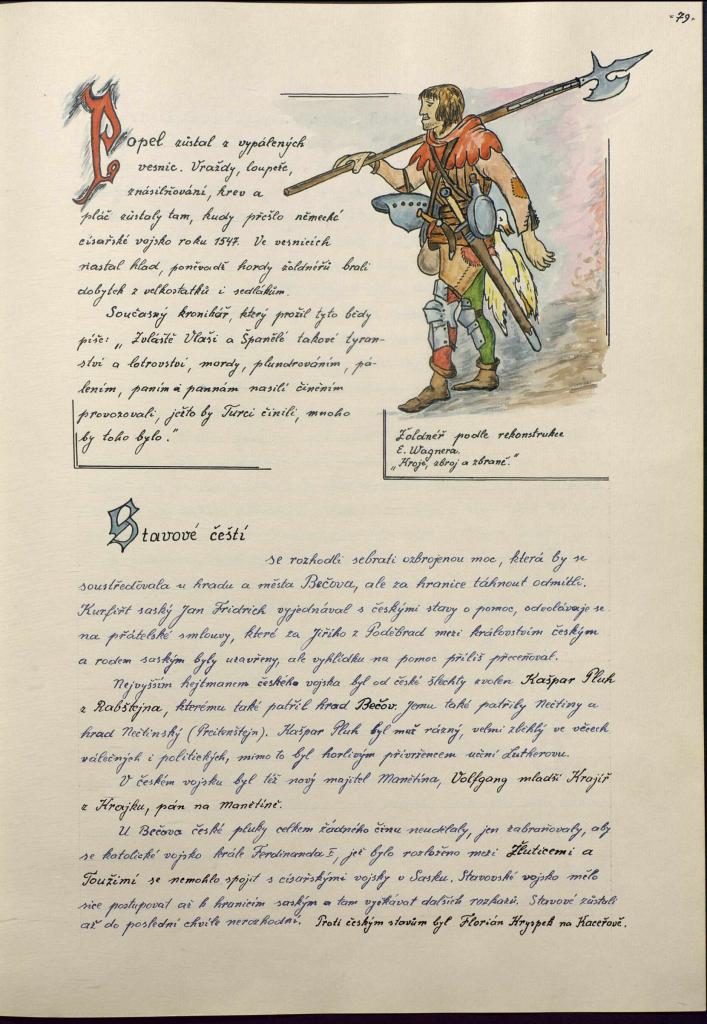 -79-
Popel zůstal z vypálených
vesnic. Vraždy, loupeže,
znásilňování, krev a
pláč zůstaly tam, kudy přešlo německé
císařské vojsko roku 1547. Ve vesnicích
nastal hlad, poněvadž hordy žoldnéřů brali
dobytek z velkostatků i sedlákům.
Současný kronikář, který prožil tyto bědy
píše: „Zvláště Vlaši a Španělé takové tyran-
ství a lotrovství, mordy, plundrováním, pá-
lením, paním a pannám násilí činěním
provozovali, ježto by Turci činili, mnoho
by toho bylo."
Žoldnéř podle rekonstrukce
E. Wagnera.
„Kroje, zbroj a zbraně."
Stavové čeští
se rozhodli sebrati ozbrojenou moc, která by se
soustřeďovala u hradu a města Bečova, ale za hranice táhnout odmítli.
Kurfiřt saský Jan Fridrich vyjednával s českými stavy o pomoc, odvolávaje se
na přátelské smlouvy, které za Jiřího z Poděbrad mezi královstvím českým
a rodem saským byly uzavřeny, ale vyhlídku na pomoc příliš přeceňoval.
Nejvyšším hejtmanem českého vojska byl od české šlechty zvolen Kašpar Pluh
z Rabštejna, kterému také patřil hrad Bečov. Jemu také patřily Nečtiny a
hrad Nečtinský (Preitenštejn). Kašpar Pluh byl muž rázný, velmi zběhlý ve věcech
válečných i politických, mimo to byl horlivým přívržencem učení Lutherovu.
V českém vojsku byl též nový majitel Manětína, Volfgang mladší Krajíř
z Krajku, pán na Manětíně.
U Bečova české pluky celkem žádného činu neudělaly, jen zabraňovaly, aby
se katolické vojsko krále Ferdinanda I, jež bylo rozloženo mezi Žluticemi a
Toužimí se nemohlo spojit s císařskými vojsky v Sasku. Stavovské vojsko mělo
sice postupovat až k hranicím saským a tam vyčkávat dalších rozkazů. Stavové zůstali
až do poslední chvíle nerozhodni. Proti českým stavům byl Florián Kryspek na Kaceřově.